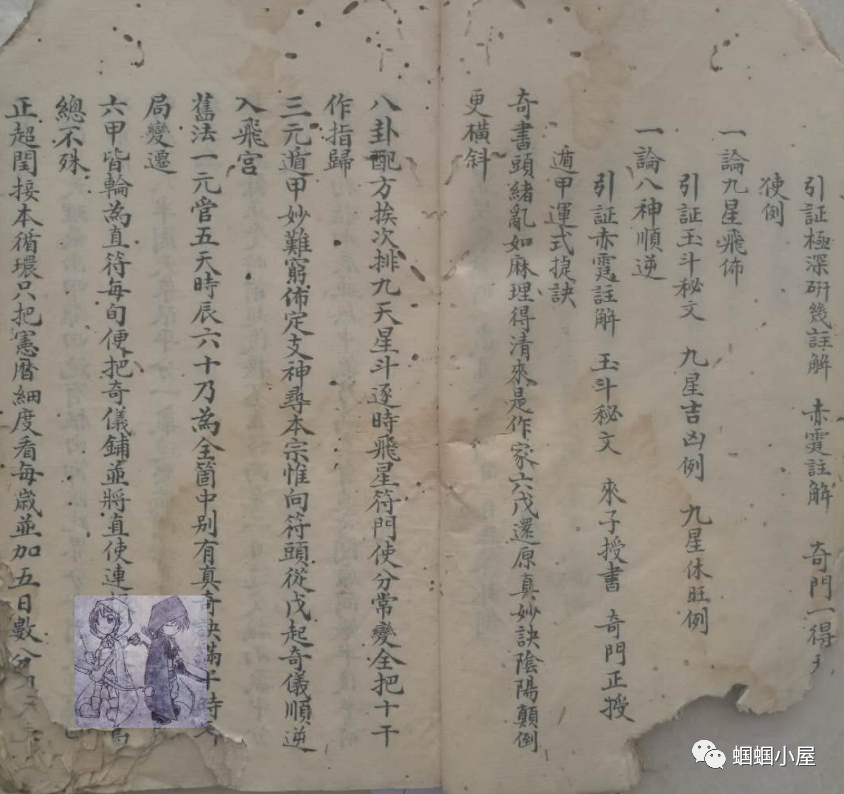 引証極深研幾註解　赤霆註解　奇門一得
使例
一論九星飛佈
引証玉斗秘文　九星吉凶例　九星休旺例
一論八神順逆
引証赤霆註解　玉斗秘文　來子授書　奇門正授
遁甲運式捷訣
奇書頭緒亂如麻理得清來是作家六戊還原真妙訣陰陽顛倒
更橫斜
八卦配方挨次排九天星斗逐時飛星符門使分常變全把十干
作指歸
三元遁甲妙難窮佈定支神尋本宗惟向符頭從戊起奇儀順逆
入飛宮
舊法一元管五天時辰六十乃為全箇中別有真奇訣滿十時
局變遷
六甲皆輪為直符每旬便把奇儀鋪並將直使連
總不殊
正超閏接本循環只把憲曆細度看每歲並加五日數分
蝈蝈小屋